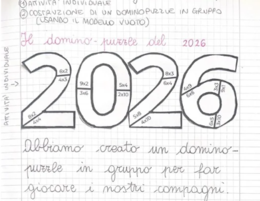 ① ATTIVITA' INDIVIDUALE
② COSTRUZIONE DI UN DOMINOPUZZLE IN GRUPPO
(USANDO IL MODELLO VUOTO)
Il domino-puzzle del 2026
ATTIVITA' INDIVIDUALE
2026
Abbiamo creato un domino-
puzzle in gruppo per far
giocare i nostri compagni.